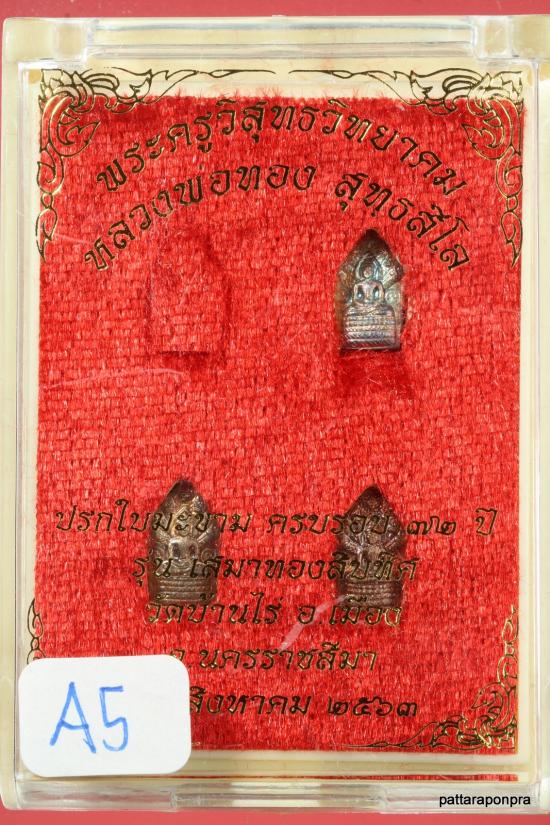 พระครูวิสุทธวิทยาคม
หลวงพ่อทอง สุทธสีโล
ปรกใบมะขาม ครบรอบ ๗๒ ปี
รุ่น เสมาทองสิบทิศ
วัดบ้านไร่ อ.เมือง
จ.นครราชสีมา
สิงหาคม ๒๕๖๓
A5
pattaraponpra